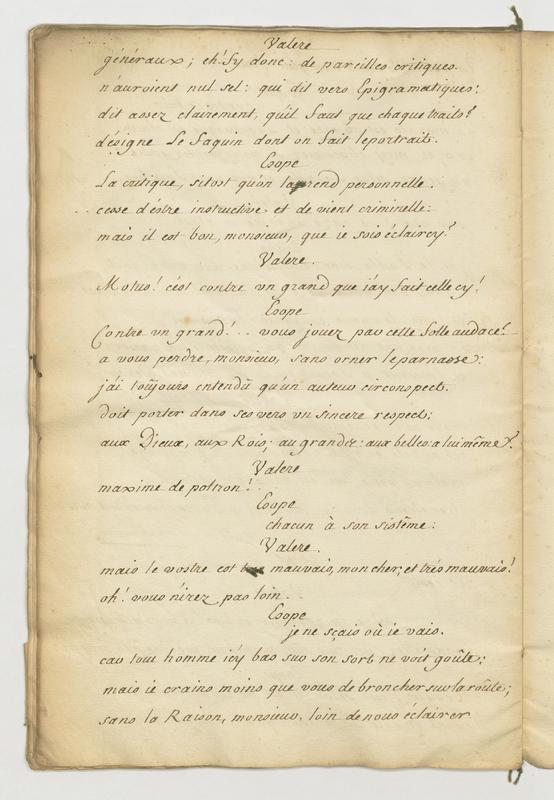 Valere
généraux; eh! fy donc: de pareilles critiques.
n'auroient nul sel: qui dit vers Epigramatiques:
dit assez clairement, qu'il faut que chaque traits?
désigne Le faquin dont on fait le portrait.
Esope
La critique, sitost qu'on la prend personnelle.
cesse d'estre instructive, et de vient criminelle:
mais il est bon, monsieur, que ie sois éclaircy?
Valere.
Motus! c'est contre vn grand que i'ay fait celle cy!
Esope
Contre vn grand!.. vous jouez par cette folle audace!
a vous perdre, monsieur, sans orner le parnasse:
j'ái toûjours entendû qu'un auteur circonspect.
doit porter dans ses vers vn sincere respect;
aux Dieux, aux Rois; au grandez: aux belles: a lui même?.
Valere
maxime de poltron!.
Esope
chacun à son sistême:
Valere.
mais le vostre est mauvais, mon cher, et trés mauvais!
oh! vous n'irez pas loin..
Esope
je ne sçais où ie vais.
car tout homme icy bas sur son sort ne voit goûte;
mais ie crains moins que vous de broncher sur la roûte;
sans la Raison, monsieur, loin de nous éclairer